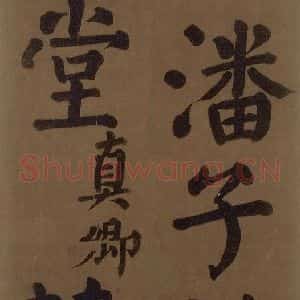 潘子
堂
真卿
Shufawang.CN